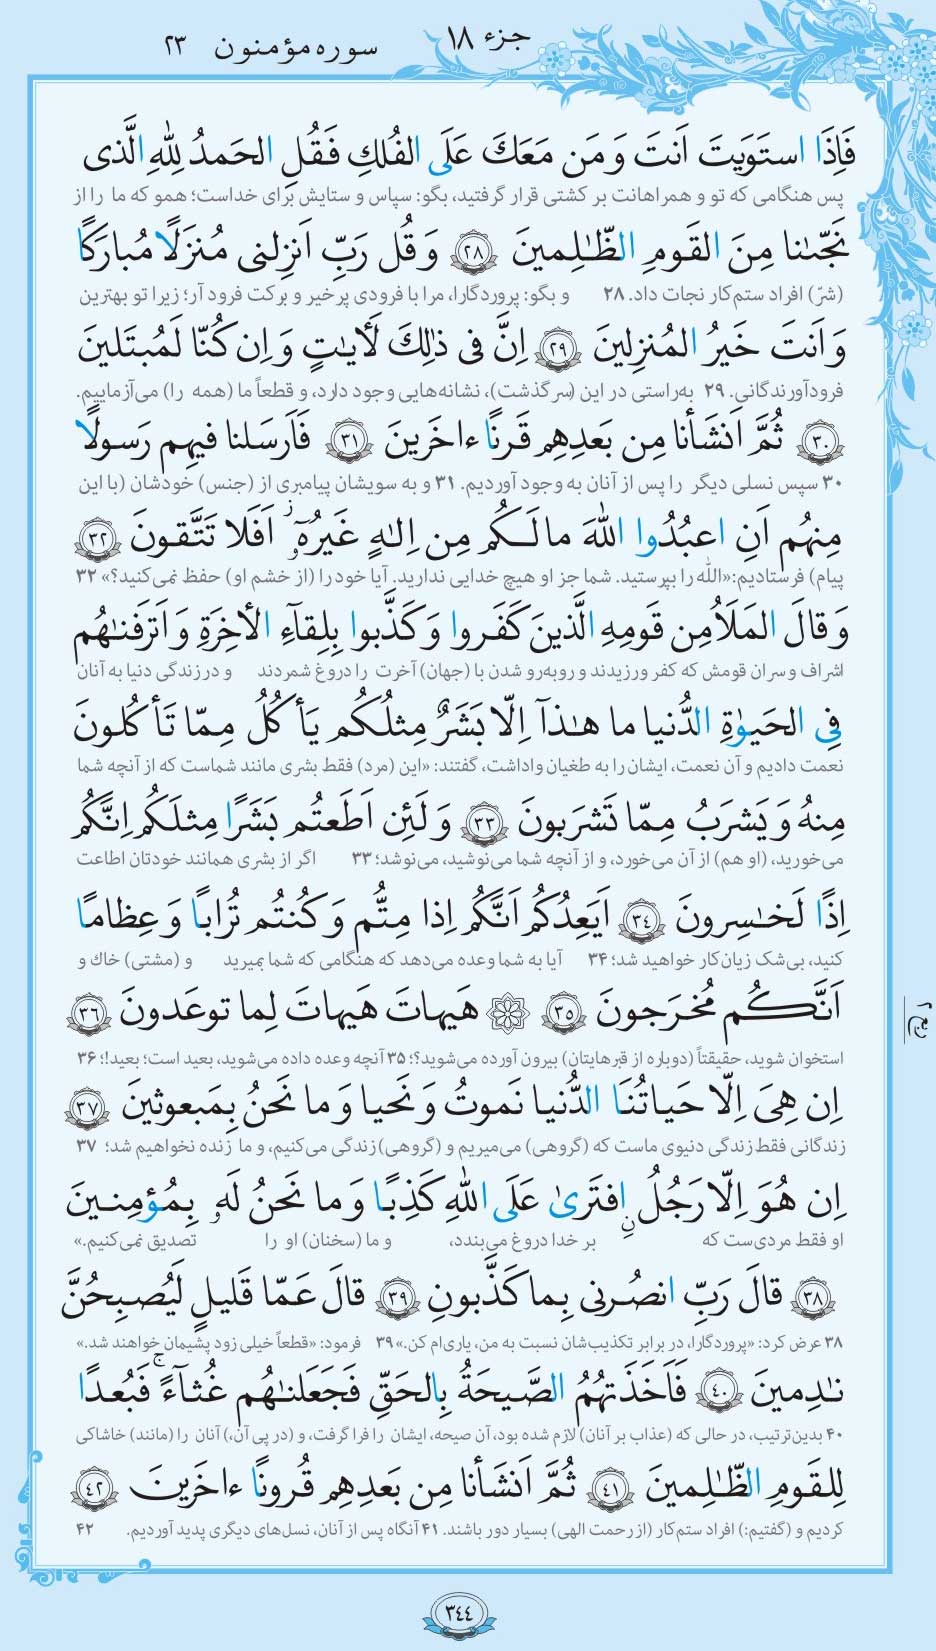 جزء ۱۸
سوره مؤمنون ۲۳
فَاِذَا استَوَیتَ اَنتَ وَ مَن مَعَكَ عَلَی الفُلكِ فَقُلِ الحَمدُ لِلّٰهِ الَّذی
پس هنگامی که تو و همراهانت بر کشتی قرار گرفتید، بگو: سپاس و ستایش برای خداست؛ همو که ما را از
نَجّىٰنا مِنَ القَومِ الظّٰلِمینَ ﴿۲۸﴾ وَ قُل رَبِّ اَنزِلنی مُنزَلًا مُبارَكًا
(شرّ) افراد ستم‌کار نجات داد. ۲۸ و بگو: پروردگارا، مرا با فرودی پرخیر و برکت فرود آر؛ زیرا تو بهترین
وَ اَنتَ خَیرُ المُنزِلینَ ﴿۲۹﴾ اِنَّ فی ذٰلِكَ لَأٓیٰتٍ وَ اِن كُنّا لَمُبتَلینَ
فرودآورندگانی. ۲۹ به‌راستی در این (سرگذشت)، نشانه‌هایی وجود دارد، و قطعاً ما (همه را) می‌آزماییم.
﴿۳۰﴾ ثُمَّ اَنشَأنا مِن بَعدِهِم قَرنًا ءاخَرینَ ﴿۳۱﴾ فَاَرسَلنا فیهِم رَسولًا
۳۰ سپس نسلی دیگر را پس از آنان به وجود آوردیم. ۳۱ و به سویشان پیامبری از (جنس) خودشان (با این
مِنهُم اَنِ اعبُدُوا اللّٰهَ ما لَكُم مِن اِلٰهٍ غَیرُهٓ اَفَلا تَتَّقونَ ﴿۳۲﴾
پیام) فرستادیم: «اللّٰه را بپرستید. شما جز او هیچ خدایی ندارید. آیا خود را (از خشم او) حفظ نمی‌کنید؟» ۳۲
وَ قالَ المَلَأُ مِن قَومِهِ الَّذینَ كَفَروا وَ كَذَّبوا بِلِقآءِ الأخِرَةِ وَ اَترَفنٰهُم
اشراف و سران قومش که کفر ورزیدند و روبه‌رو شدن با (جهان) آخرت را دروغ شمردند و در زندگی دنیا به آنان
فِی الحَیوٰةِ الدُّنیا ما هٰذآ اِلّا بَشَرٌ مِثلُكُم یَأكُلُ مِمّا تَأكُلونَ
نعمت دادیم و آن نعمت، ایشان را به طغیان واداشت، گفتند: «این (مرد) فقط بشری مانند شماست که از آنچه شما
مِنهُ وَ یَشرَبُ مِمّا تَشرَبونَ ﴿۳۳﴾ وَ لَئِن اَطَعتُم بَشَرًا مِثلَكُم اِنَّكُم
می‌خورید، (او هم) از آن می‌خورد، و از آنچه شما می‌نوشید، می‌نوشد؛ ۳۳ اگر از بشری همانند خودتان اطاعت
اِذًا لَخٰسِرونَ ﴿۳۴﴾ اَیَعِدُكُم اَنَّكُم اِذا مِتُّم وَ كُنتُم تُرابًا وَ عِظامًا
کنید، بی‌شک زیان‌کار خواهید شد؛ ۳۴ آیا به شما وعده می‌دهد که هنگامی که شما بمیرید و (مشتی) خاك و
اَنَّكُم مُخرَجونَ ﴿۳۵﴾ ۞ هَیهاتَ هَیهاتَ لِما توعَدونَ ﴿۳۶﴾
استخوان شوید، حقیقتاً (دوباره از قبرهایتان) بیرون آورده می‌شوید؟؛ ۳۵ آنچه وعده داده می‌شوید، بعید است؛ بعید!؛ ۳۶
اِن هِیَ اِلّا حَیاتُنَا الدُّنیا نَموتُ وَ نَحیا وَ ما نَحنُ بِمَبعوثینَ ﴿۳۷﴾
زندگانی فقط زندگی دنیوی ماست که (گروهی) می‌میریم و (گروهی) زندگی می‌کنیم، و ما زنده نخواهیم شد؛ ۳۷
اِن هُوَ اِلّا رَجُلٌ افتَریٰ عَلَی اللّٰهِ كَذِبًا وَ ما نَحنُ لَهٗ بِمُؤمِنینَ
او فقط مردی‌ست که بر خدا دروغ می‌بندد، و ما (سخنان) او را تصدیق نمی‌کنیم.»
﴿۳۸﴾ قالَ رَبِّ انصُرنی بِما كَذَّبونِ ﴿۳۹﴾ قالَ عَمّا قَلیلٍ لَیُصبِحُنَّ
۳۸ عرض کرد: «پروردگارا، در برابر تکذیب‌شان نسبت به من، یاری‌ام کن.» ۳۹ فرمود: «قطعاً خیلی زود پشیمان خواهند شد.»
نٰدِمینَ ﴿۴۰﴾ فَاَخَذَتهُمُ الصَّیحَةُ بِالحَقِّ فَجَعَلنٰهُم غُثآءً ۚ فَبُعدًا
۴۰ بدین‌ترتیب، در حالی که (عذاب بر آنان) لازم شده بود، آن صیحه، ایشان را فرا گرفت، و (در پی آن،) آنان را (مانند) خاشاکی
لِلقَومِ الظّٰلِمینَ ﴿۴۱﴾ ثُمَّ اَنشَأنا مِن بَعدِهِم قُرونًا ءاخَرینَ ﴿۴۲﴾
کردیم و (گفتیم:) افراد ستم‌کار (از رحمت الهی) بسیار دور باشند. ۴۱ آنگاه پس از آنان، نسل‌های دیگری پدید آوردیم. ۴۲
۳۴۴